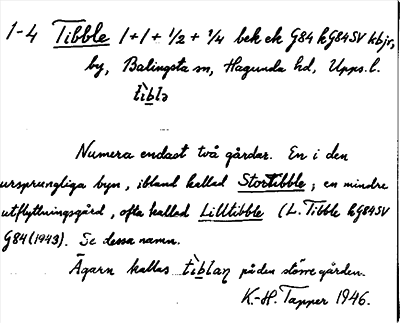 1-4 Tibble 1+1+1/2+3/4 bek ek G84 kG84SV kbjr,
by, Balingsta sn, Hagunda hd, Upps. l.
tìblə
Numera endast två gårdar. En i den
ursprungliga byn, ibland kallad Stortibble; en mindre
utflyttningsgård, ofta kallad Lilltibble (L. Tibble kG84SV
G84(1943). Se dessa namn.
Ägarn kallas tìblaɲ på den större gården.
K.-H. Tapper 1946.